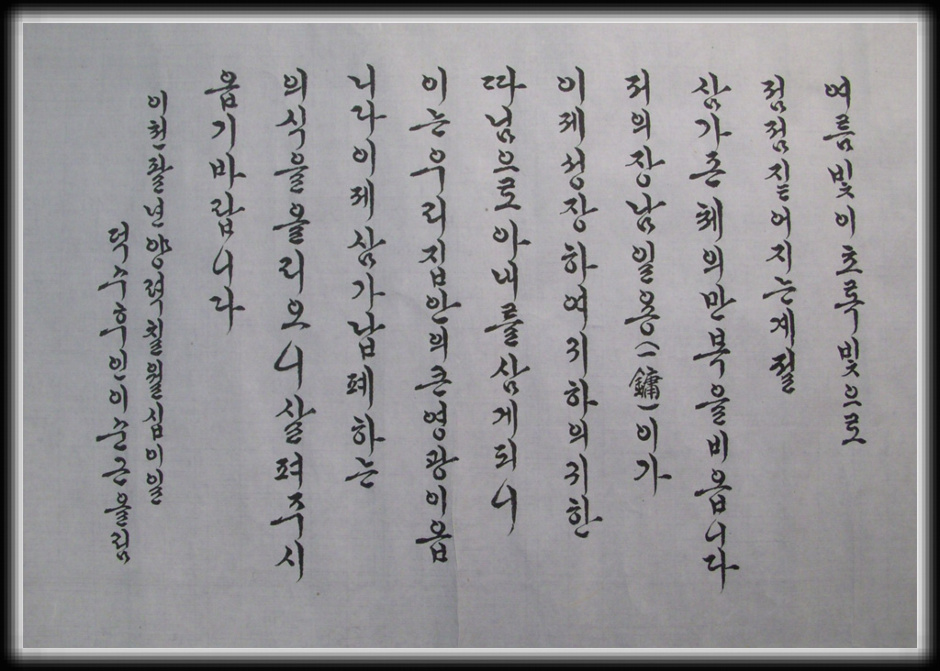 여름빛이초록빛으로
점점짙어지는계절
삼가존체의만복을비옵니다
저의장남일용(一鏞)이가
이제성장하여귀하의귀한
따님으로아내를삼게되니
이는우리집안의큰영광이옵
니다이제삼가납폐하는
의식을올리오니살펴주시
옵기바랍니다
이천팔년양력칠월십이일
덕수후인이순근올림